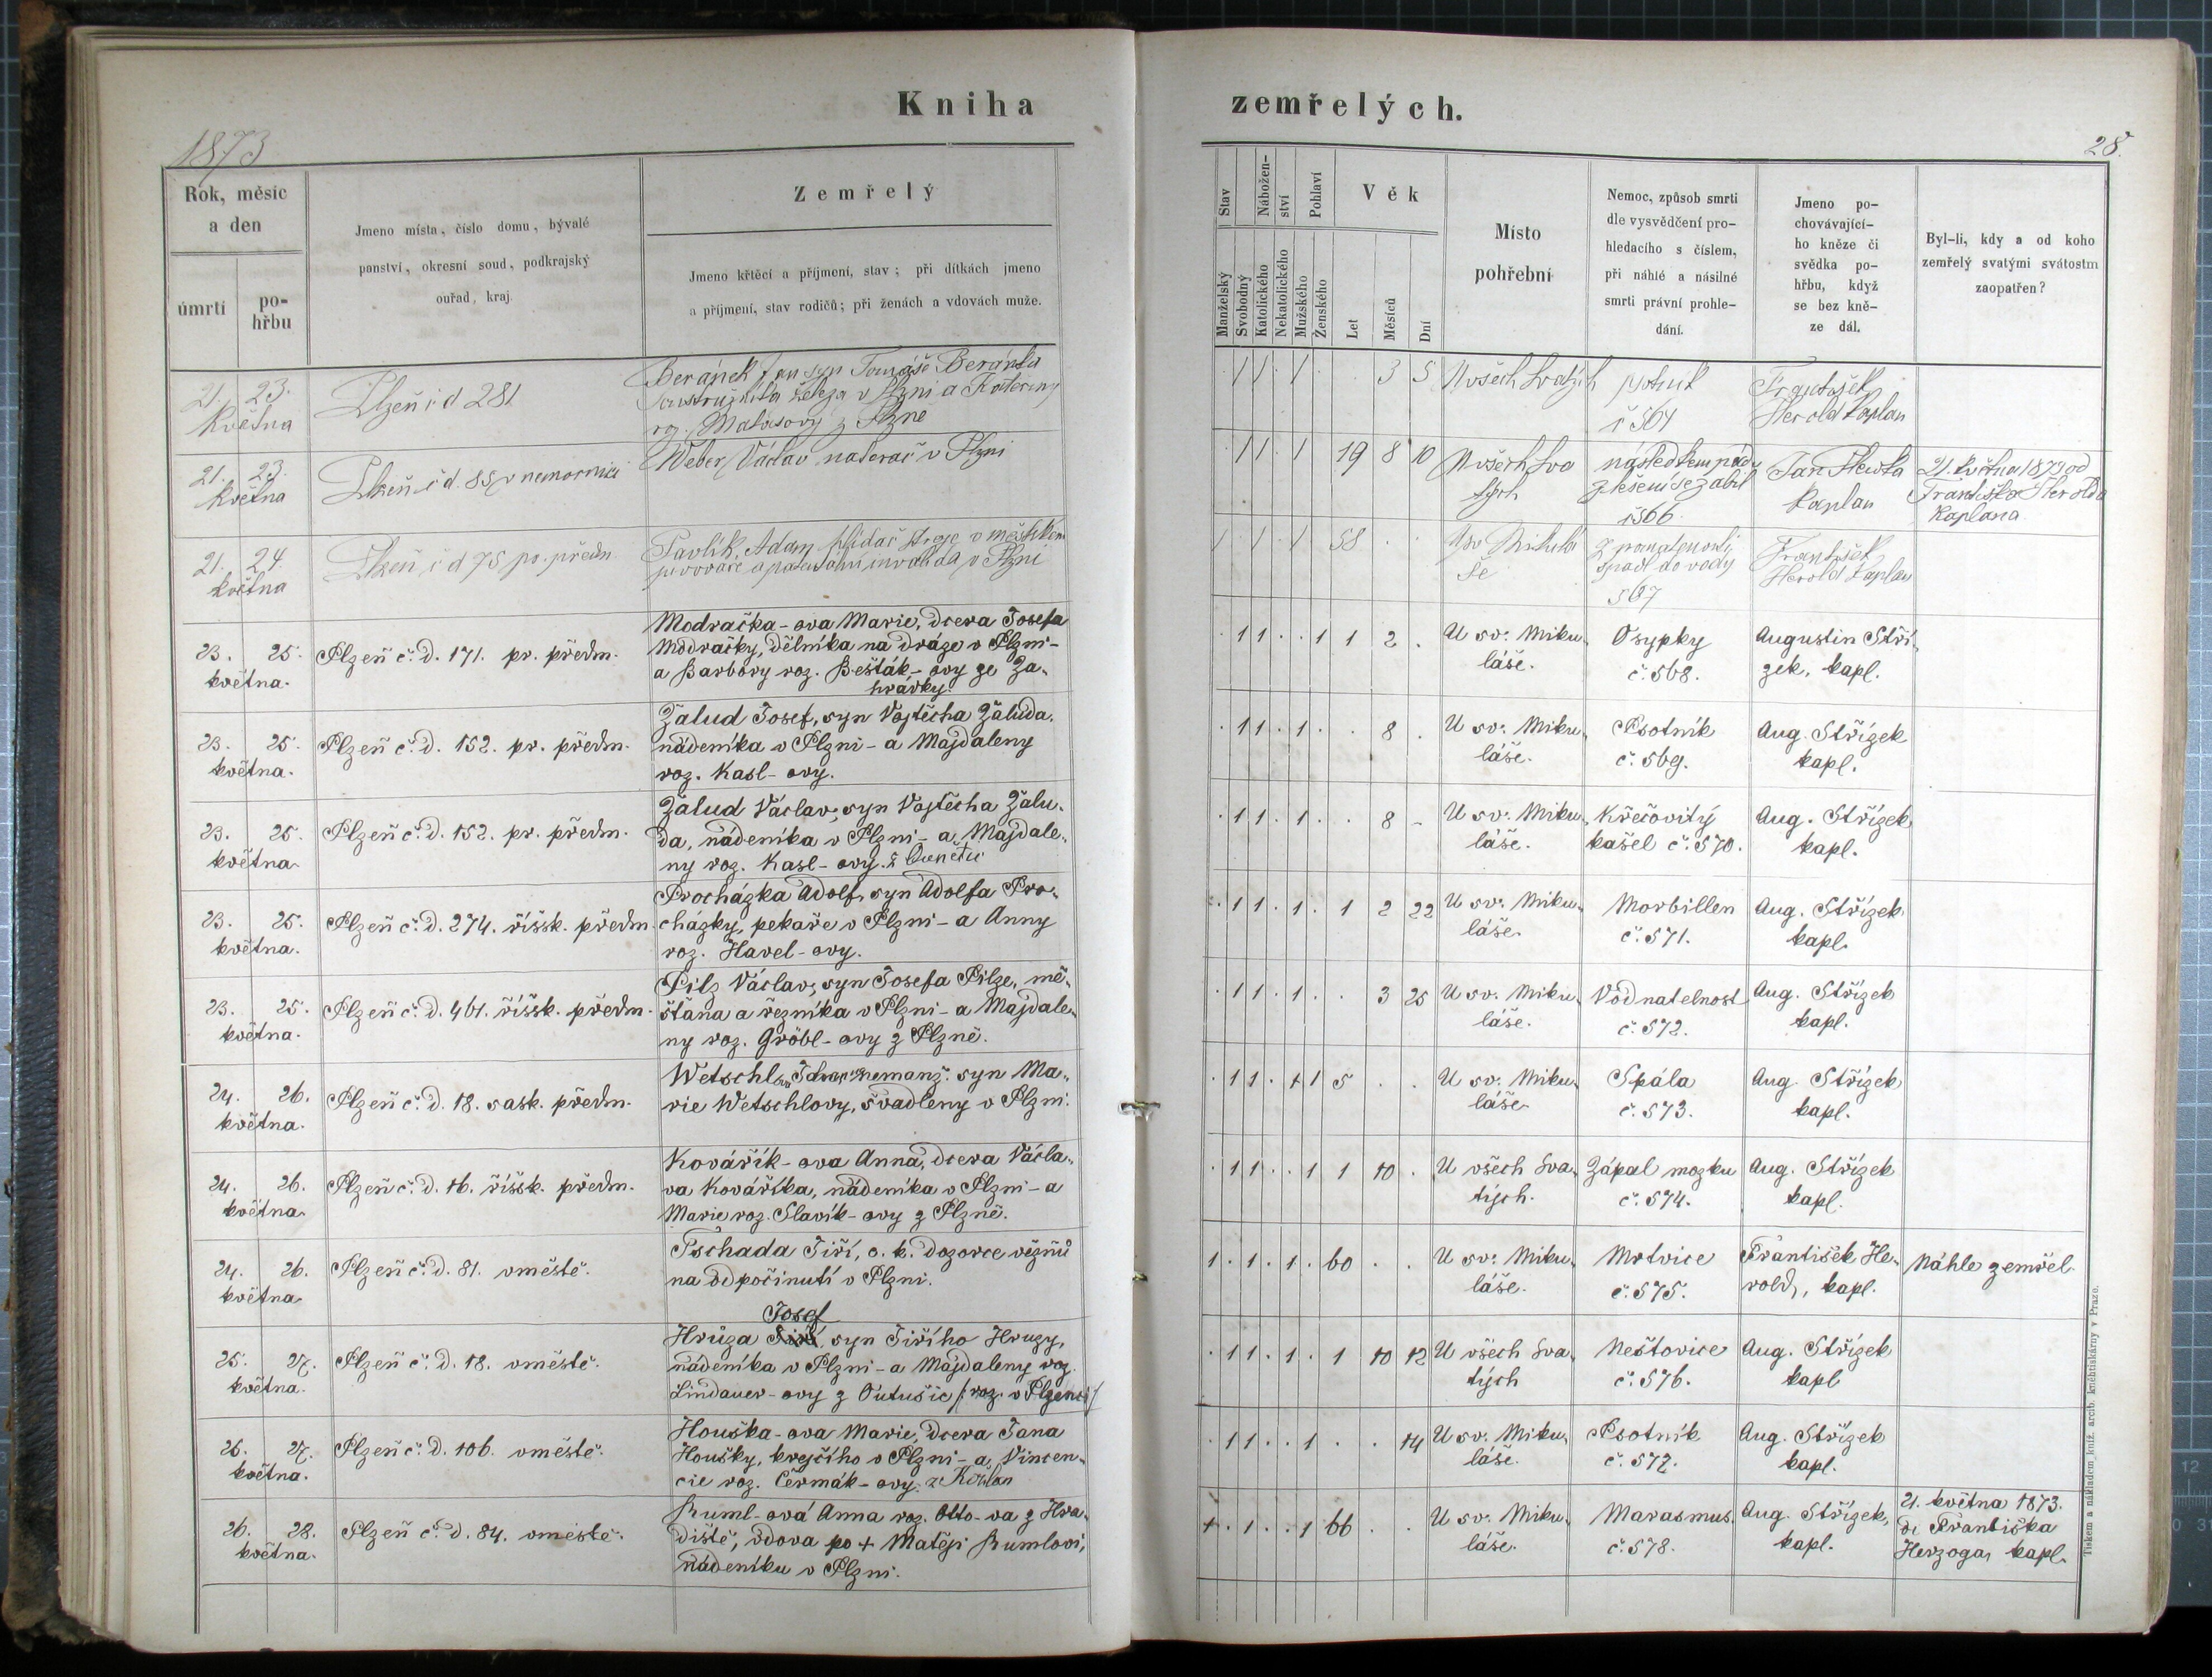 Kniha zemřelých.
1873
28.
Rok, měsíc
a den
úmrtí
po-
hřbu
Jmeno místa, číslo domu, bývalé
panství, okresní soud, podkrajský
ouřad, kraj.
Zemřelý
Jmeno křtěcí a příjmení, stav; při dítkách jmeno
a příjmení, stav rodičů; při ženách a vdovách muže.
Stav
Nábožen-
ství
Pohlaví
Věk
Manželský
Svobodný
Katolického
Nekatolického
Mužského
Ženského
Let
Měsíců
Dní
Místo
pohřební
Nemoc, způsob smrti
dle vysvědčení pro-
hledacího s číslem,
při náhlé a násilné
smrti právní prohle-
dání.
Jmeno po-
chovávající-
ho kněze či
svědka po-
hřbu, když
se bez kně-
ze dál.
Byl-li, kdy a od koho
zemřelý svatými svátostm
zaopatřen?
21. 23.
května
Plzeň č d 281
Beránek Jan syn Tomáše Beránka
soustružníka železa v Plzni a Kateřiny
roz. z Plzně
1 1 1 3 5
U všech Svatých
psotník
č 564
František
Herold kaplan
21. 23.
května
Plzeň č d. 85 v nemocnici
Weber Václav natěrač v Plzni
1 1 1 19 8 10
U všech Sva
tých
následkem pádu
z lešení se zabil
č 566.
Jan Hlewka
kaplan
21. května 1873 od
Františka Herolda
kaplana
21. 24.
května
Plzeň č d 75 pr. předm
Pavlík, Adam hlídač v měšťkém
pivováře a invalida v Plzni
1 1 1 58
U sv Mikulá
še
spadl do vody
567
František
Herold kaplan
23. 25.
května.
Plzeň č. d. 171. pr. předm.
Modračka-ova Marie, dcera Josefa
Modračky, dělníka na dráze v Plzni-
a Barbory roz. Bešták-ovy ze Za-
hrádky.
1 1 1 1 2
U sv. Miku-
láše.
Osypky
č. 568.
Augustin Stří-
zek, kapl.
23. 25.
května.
Plzeň č. d. 152. pr. předm.
Žalud Josef, syn Vojtěcha Žaluda,
nádeníka v Plzni-a Majdaleny
roz. Kasl-ovy.
1 1 1 8
U sv. Miku-
láše.
Psotník
č. 569.
Aug. Střízek
kapl.
23. 25.
května
Plzeň č. d. 152. pr. předm.
Žalud Václav, syn Vojtěcha Žalu-
da, nádeníka v Plzni-a Majdale-
ny roz. Kasl-ovy. z
1 1 1 8 -
U sv. Miku-
láše.
Křečovitý
kašel č. 570.
Aug. Střízek
kapl.
23. 25.
května.
Plzeň č. d. 274. říšsk. předm.
Procházka Adolf, syn Adolfa Pro-
cházky, pekaře v Plzni-a Anny
roz. Havel-ovy.
1 1 1 1 2 22
U sv. Miku-
láše.
Morbillen
č. 571.
Aug. Střízek
kapl.
23. 25.
května.
Plzeň č. d. 461. říšsk. předm.
Pilz Václav, syn Josefa Pilze, mě-
šťana a řezníka v Plzni-a Majdale-
ny roz. Gröbl-ovy z Plzně.
1 1 1 3 25
U sv. Miku-
láše.
Vodnatelnost
č. 572.
Aug. Střízek
kapl.
24. 26.
května.
Plzeň č. d. 18. sask. předm.
Wetschl nemanž. syn Ma-
rie Wetschlovy, švadleny v Plzni.
1 1 1 1 5
U sv. Miku-
láše
Spála
č. 573.
Aug. Střízek
kapl.
24. 26.
května
Plzeň č. d. 16. říšsk. předm.
Kovářík-ova Anna, dcera Václa-
va Kovaříka, nádeníka v Plzni-a
Marie roz. Slavík-ovy z Plzně.
1 1 1 1 10
U všech Sva-
tých.
Zápal mozku
č. 574.
Aug. Střízek
kapl.
24. 26.
května
Plzeň č. d. 81. v městě.
Pschada Jiří, c. k. dozorce vězňů
na odpočinutí v Plzni.
1 1 1 60
U sv. Miku-
láše.
Mrtvice
č. 575.
František He-
rold, kapl.
Náhle zemřel.
25. 27.
května.
Plzeň č. d. 18. v městě.
Josef
Hrůza Jiří, syn Jiřího Hruzy,
nádeníka v Plzni-a Majdaleny roz.
Lindauer-ovy z Outušic /: roz. v Plzenci /
1 1 1 1 10 12
U všech Sva-
tých
Neštovice
č. 576.
Aug. Střízek
kapl
26. 27.
května.
Plzeň č. d. 106. v městě.
Houška-ova Marie, dcera Jana
Houšky, krejčího v Plzni-a Vincen-
cie roz. Čermák-ovy.
1 1 1 14
U sv. Miku-
láše.
Psotník
č. 577.
Aug. Střízek
kapl.
26. 28.
května.
Plzeň č. d. 84. v městě.
Ruml-ová Anna roz. Otto-va z Hra-
diště, vdova po + Matěji Rumlovi,
nádeníku v Plzni.
1 1 1 66
U sv. Miku-
láše.
Marasmus
č. 578.
Aug. Střízek,
kapl.
21. května 1873.
Di Františka
Herzoga, kapl.
Tiskem a nákladem kníž. arcib. knihtiskárny v Praze.